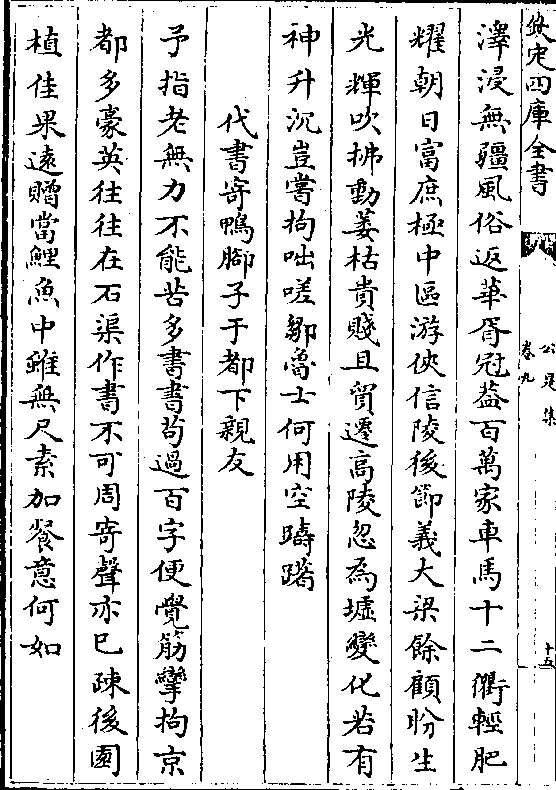 欽定四庫全書
公是集
卷九
十五
澤浸無疆風俗返華胥冠葢百萬家車馬十二衢輕肥
耀朝日富庶極中區游俠信陵後節義大梁餘顧盼生
光輝吹拂動萎枯貴賤且貿遷高陵忽為墟變化若有
神升沉豈嘗拘咄嗟鄒魯士何用空躊躇
代書寄鴨腳子于都下親友
予指老無力不能苦多書書茍過百字便覺筋攣拘京
都多豪英往往在石渠作書不可周寄聲亦已疎後園
植佳果遠贈當鯉魚中雖無尺素加餐意何如